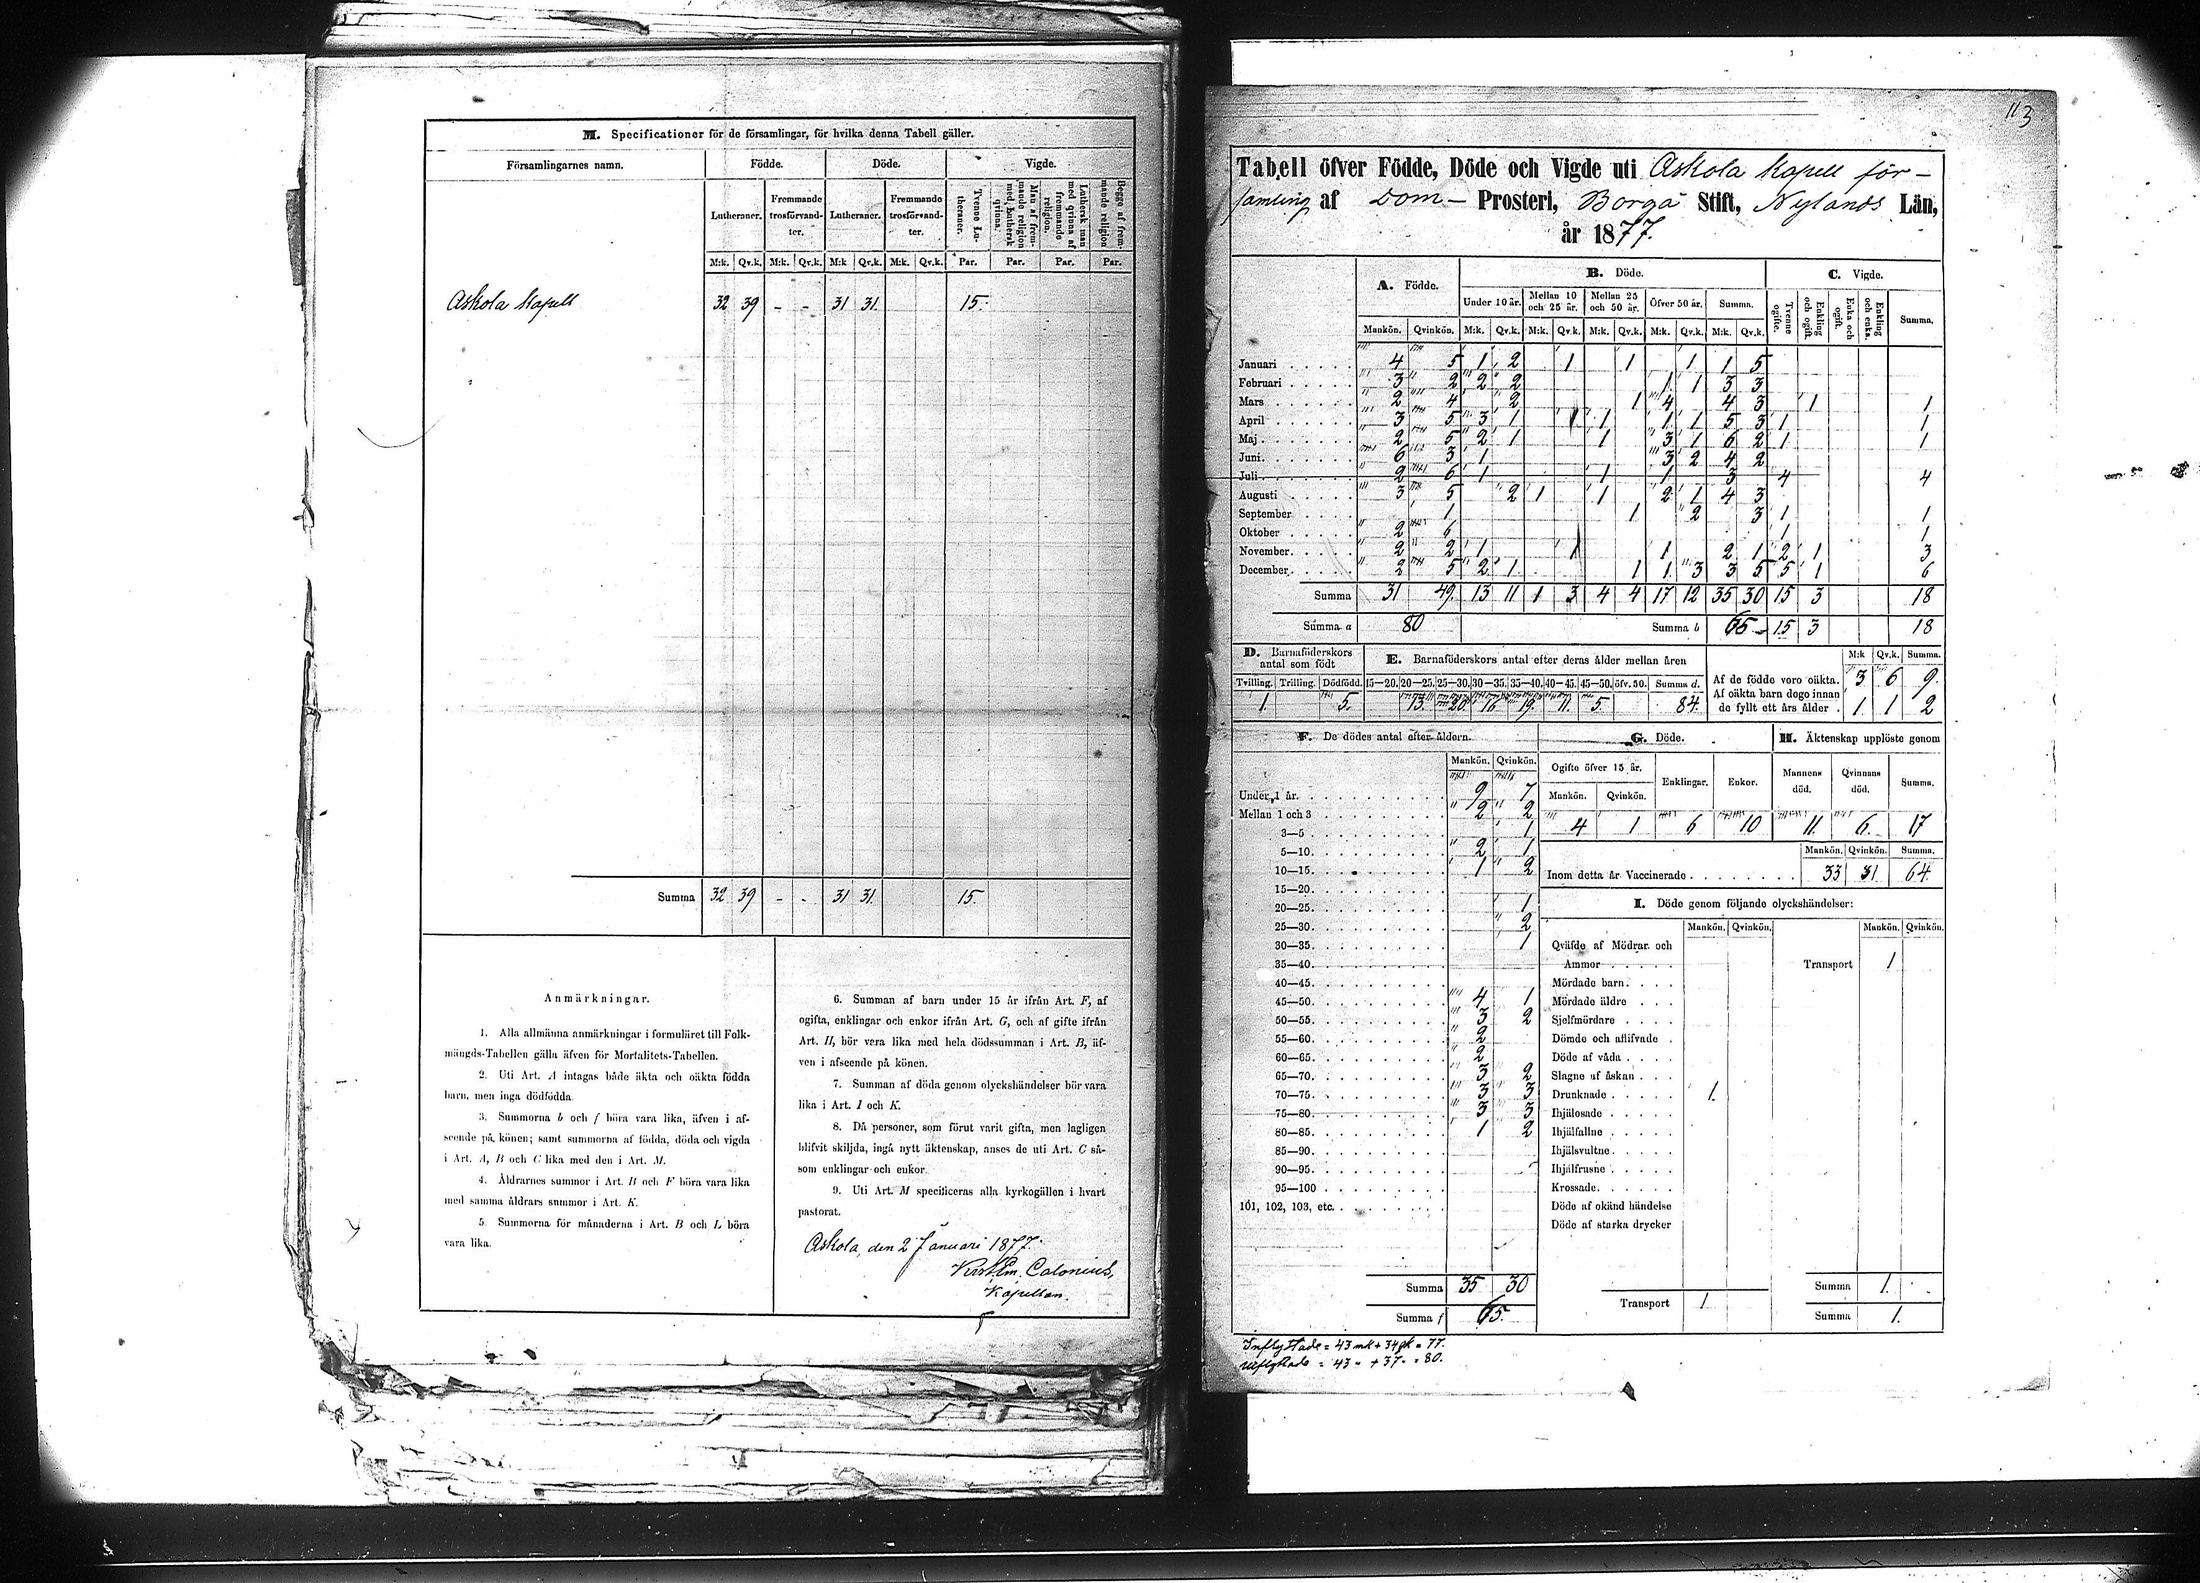 M. Specificationer för de församlingar, för hvilka denna Tabell gäller.
Församlingarnes namn. Födde. Döde. Vigde.
Lutheraner. Fremmande trosförvandter. Lutheraner. Fremmande trosförvandter. Tvenne Lutheraner. Man af fremmande religion med luthersk qvinna. Luthersk man med qvinna af fremmande religion. Begge af fremmande religion
M:k. Qv.k. M:k. Qv.k. M:k Qv.k. M:k. Qv.k. Par. Par. Par. Par.
Askola Kapell 32 39 - - 31 31. 15.
Summa 32 39 - - 31 31. 15.
Anmärkningar.
1. Alla allmänna anmärkningar i formuläret till Folk-
mängds-Tabellen gälla äfven för Mortalitets-Tabellen.
2. Uti Art. A intagas både äkta och oäkta födda
barn, men inga dödfödda.
3. Summorna b och f böra vara lika, äfven i af-
seende på könen; samt summorna af födda, döda och vigda
i Art. A, B och C lika med den i Art. M.
4. Åldrarnes summor i Art. B och F böra vara lika
med samma åldrars summor i Art. K.
5. Summorna för månaderna i Art. B och L böra
vara lika.
6. Summan af barn under 15 år ifrån Art. F, af
ogifta, enklingar och enkor ifrån Art. G, och af gifte ifrån
Art. H, bör vera lika med hela dödssumman i Art. B, äf-
ven i afseende på könen.
7. Summan af döda genom olyckshändelser bör vara
lika i Art. I och K.
8. Då personer, som förut varit gifta, men lagligen
blifvit skiljda, ingå nytt äktenskap, anses de uti Art. C så-
som enklingar och enkor.
9. Uti Art. M specificeras alla kyrkogällen i hvart
pastorat.
Askola, den 2 Januari 1877.
Colonius,
Kapellan.
113
Tabell öfver Födde, Döde och Vigde uti Askola Kapell för-
samling af Dom- Prosteri, Borgå Stift, Nylands Län,
år 1877.
A. Födde. B. Döde. C. Vigde.
Under 10 år. Mellan 10 och 25 år. Mellan 25 och 50 år. Öfver 50 år. Summa. Tvenne ogifte. Enkling och ogift. Enka och ogift. Enkling och enka. Summa.
Mankön. Qvinkön. M:k. Qv.k. M:k. Qv.k. M:k. Qv.k. M:k. Qv.k. M:k. Qv.k.
Januari 4 5 1 2 1 1 1 1 5
Februari 3 2 2 2 1 1 3 3
Mars 2 4 2 1 4 4 3 1 1
April 3 5 3 1 1 1 1 1 5 3 1 1
Maj 2 5 2 1 1 3 1 6 2 1 1
Juni 6 3 1 3 2 4 2
Juli 2 6 1 1 1 3 4 4
Augusti 3 5 2 1 1 2 1 4 3
September 1 1 2 3 1 1
Oktober 2 6 1 1
November 2 2 1 1 1 2 1 2 1 3
December 2 5 2 1 1 1 3 3 5 5 1 6
Summa 31 49. 13 11 1 3 4 4 17 12 35 30 15 3 18
Summa a 80 Summa b 65 15 3 18
D. Barnaföderskors antal som födt
Tvilling. Trilling. Dödfödd.
1. 5.
E. Barnaföderskors antal efter deras ålder mellan åren
15—20. 20—25. 25—30. 30—35. 35—40. 40—45. 45—50. öfv. 50. Summa d.
13. 20. 16. 19. 11. 5. 84.
M:k Qv.k. Summa.
Af de födde voro oäkta. 3 6 9.
Af oäkta barn dogo innan
de fyllt ett års ålder 1. 1 2
F. De dödes antal efter åldern.
Mankön. Qvinkön.
Under 1 år. 9 7
Mellan 1 och 3 2 2
3—5 1
5—10. 2 1
10—15. 1 2
15—20.
20—25. 1
25—30. 2
30—35. 1
35—40.
40—45.
45—50. 4 1
50—55. 3 2
55—60. 2
60—65. 2
65—70. 3 2
70—75. 3 3
75—80. 3 3
80—85. 1 2
85—90.
90—95.
95—100
101, 102, 103, etc.
Summa 35 30
Summa f 65.
G. Döde.
Ogifte öfver 15 år. Enklingar. Enkor.
Mankön. Qvinkön.
4 1 6 10
H. Äktenskap upplöste genom
Mannens död. Qvinnans död. Summa.
11. 6. 17
Mankön. Qvinkön. Summa.
Inom detta år Vaccinerade 33 31 64.
I. Döde genom följande olyckshändelser:
Mankön. Qvinkön. Mankön. Qvinkön.
Qväfde af Mödrar och
Ammor Transport 1
Mördade barn
Mördade äldre
Sjelfmördare
Dömde och aflifvade
Döde af våda
Slagne af åskan
Drunknade 1.
Ihjälosade
Ihjälfallne
Ihjälsvultne
Ihjälfrusne
Krossade
Döde af okänd händelse
Döde af starka drycker
Summa 1.
Transport 1 Summa 1.
Inflyttade = 43 mk + 34 qk = 77.
utflyttade = 43 " + 37 " = 80.